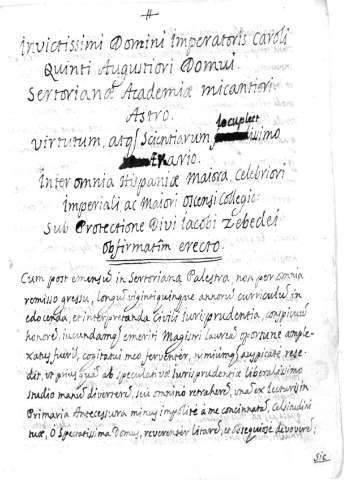 Invictissimi Domini Imperatoris Caroli
Quinti Augustiori Domui.
Sertorianæ Academiæ micantiori
Astro.
Virtutum, atq; Scientiarum locuplet issimo
Ærario.
Inter omnia Hispaniæ Maiora, Celebriori
Imperiali, ac Maiori Oscensi Collegio
Sub Protectione Divi Iacobi Zebedei
obfirmatim erecto.
Cum post emensū in Sertoriana Palestra, non per omnia
remisso gressu, longū viginti quinque annorū curriculū in
edocenda, et interpretanda Civili Iurisprudentia, conspicuū
honore, iucundamq; emeriti Magistri lauream oportuneample-
xatus fuerī, cogitatui meo ferventer, nimiumq; auspicate rese-
dit, ut priusquā ab speculativæ Iurisprudentiæ liberalissimo
studio manū diverterē, seu omnino retraherē, unā ex Lecturis in
Primaria Antecessura minus impolite à me concinnatā, Celsitudini
tuæ, O Spectatissima Domus, reverenter litarē, et obsequiose devoverē;
sic